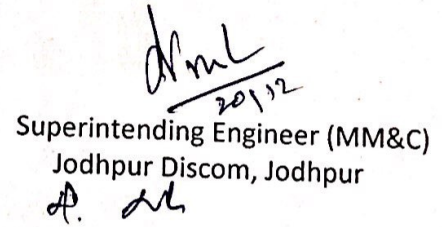 20/12
Superintending Engineer (MM&C)
Jodhpur Discom, Jodhpur